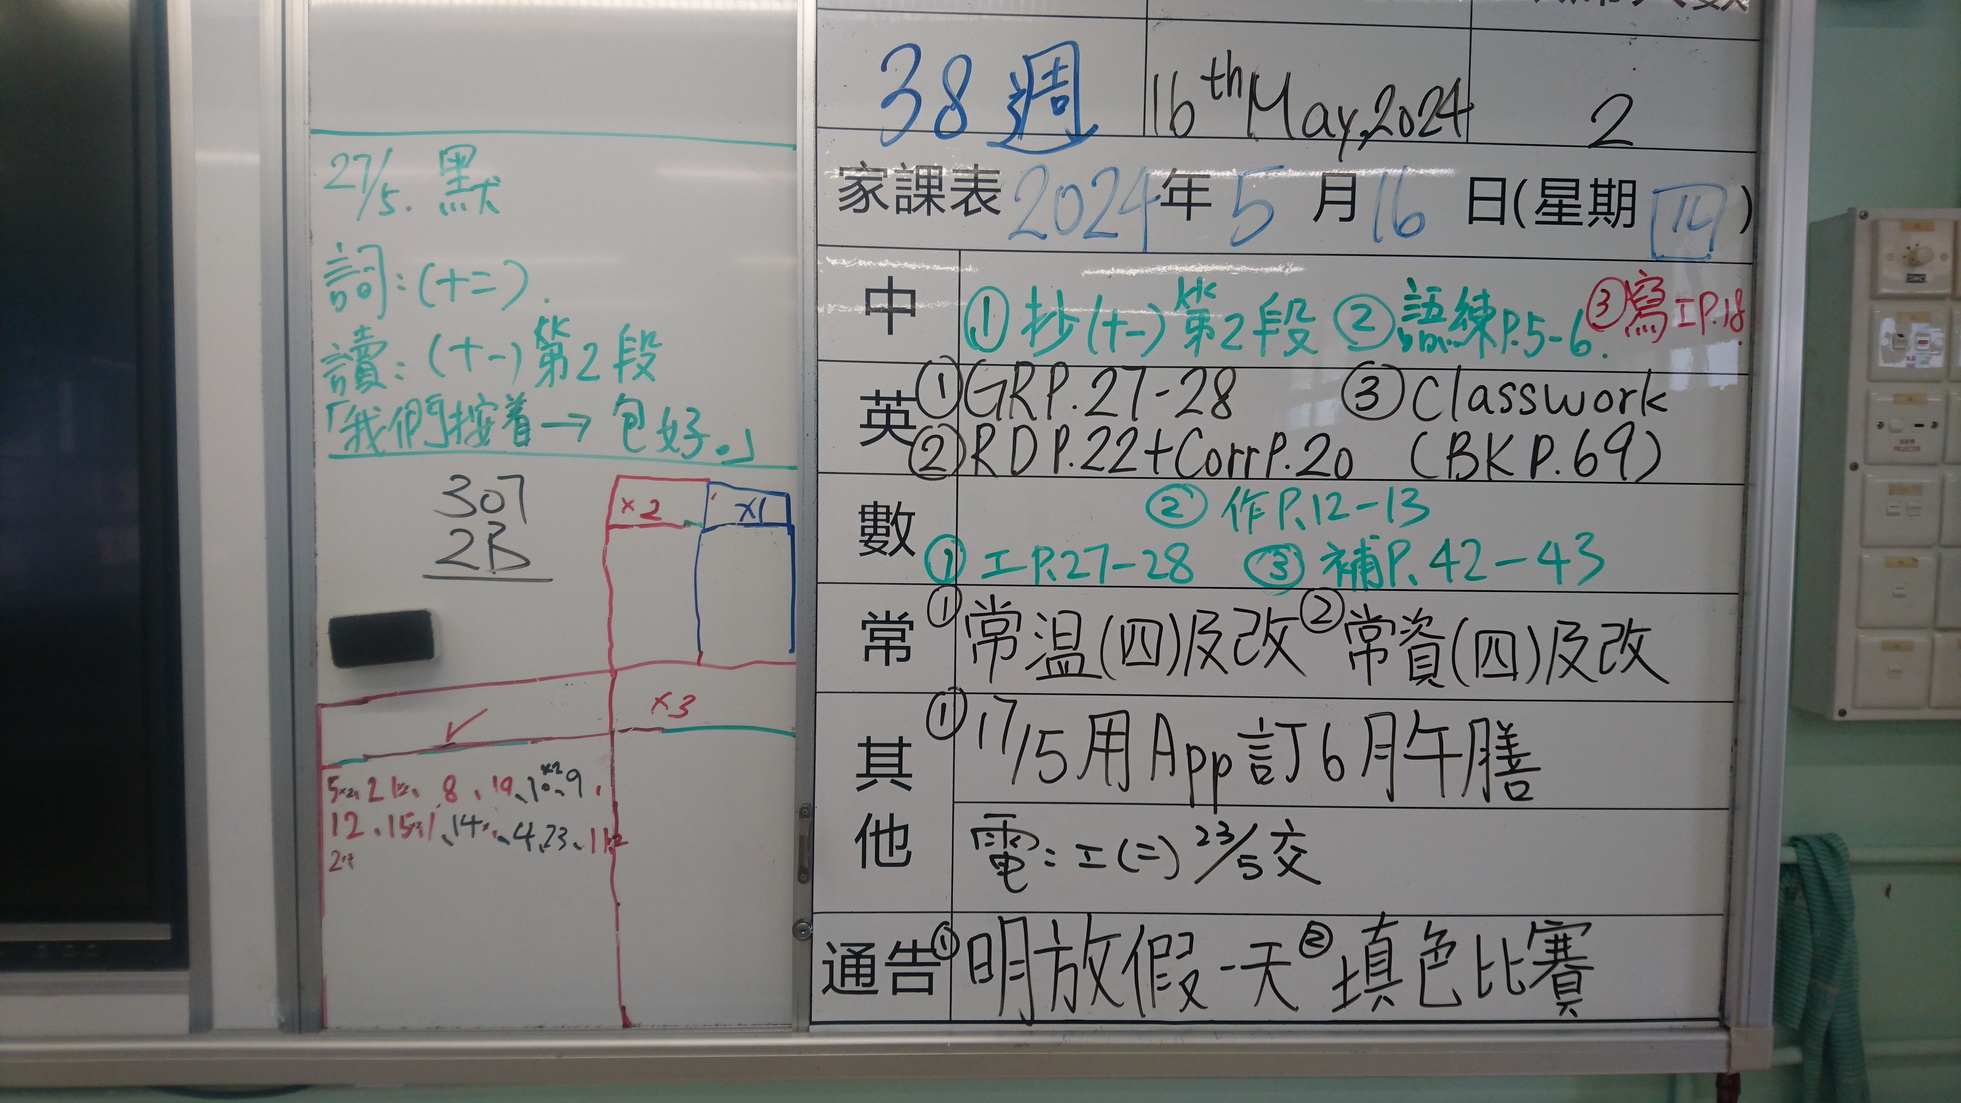 27/5. 默
詞:(十二).
讀:(十一)第2段
「我們接着→包好。」
307
2B
x2
x1
x3
38週
16th May,2024
2
家課表 2024年5月16日(星期四)
中
①抄(十一)第2段 ②語練P.5-6. ③寫工P.18
英
①GRP.27-28 ③Classwork
②RD P.22+CorrP.20 (BK P.69)
數
②作P.12-13
①工P.27-28 ③補P.42-43
常
①常温(四)及改 ②常資(四)及改
其他
①17/5用App訂6月午膳
電:工(二) 23/5交
通告
①明放假一天 ②填色比賽